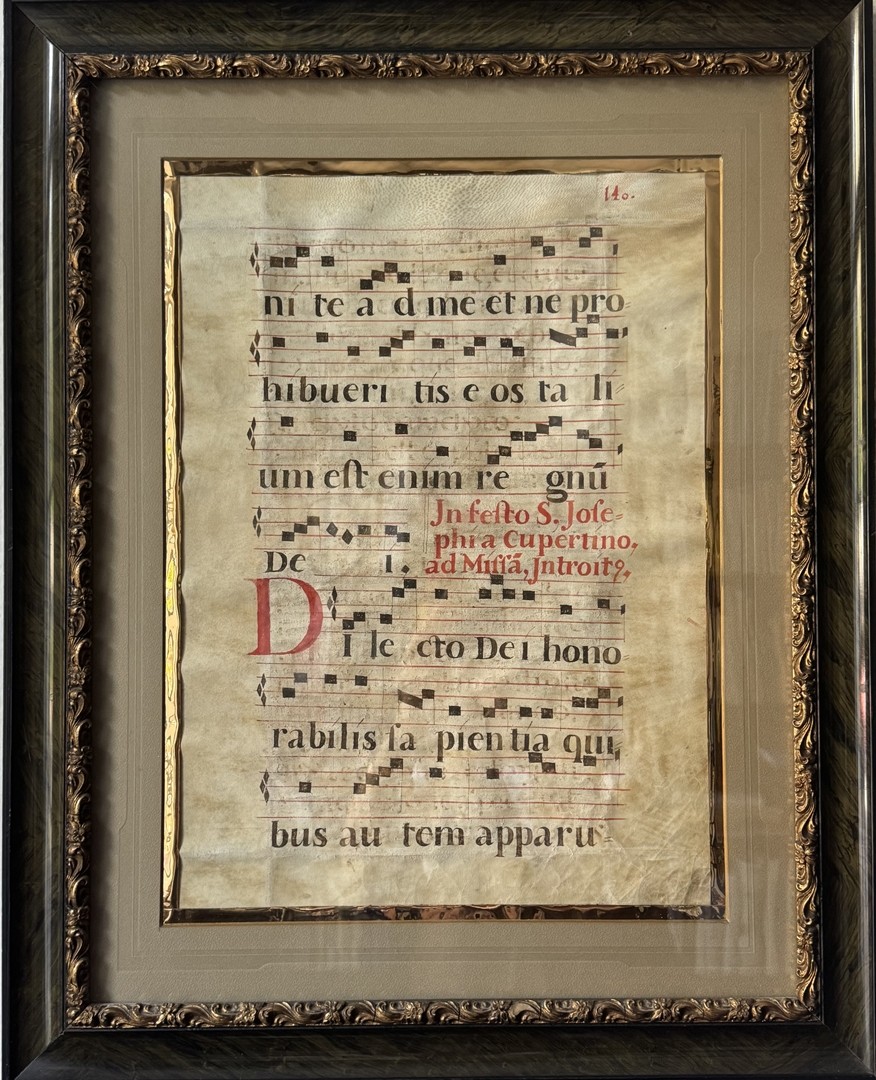 140.
ni te a d me et ne pro
hibueri tis e os ta li=
um eſt enim re gnū
Jn feſto S. Joſe=
phi a Cupertino,
De i. ad Miſſā, Jntroit9,
DI le cto De i hono
rabilis ſa pien tia qui,
bus au tem apparu=